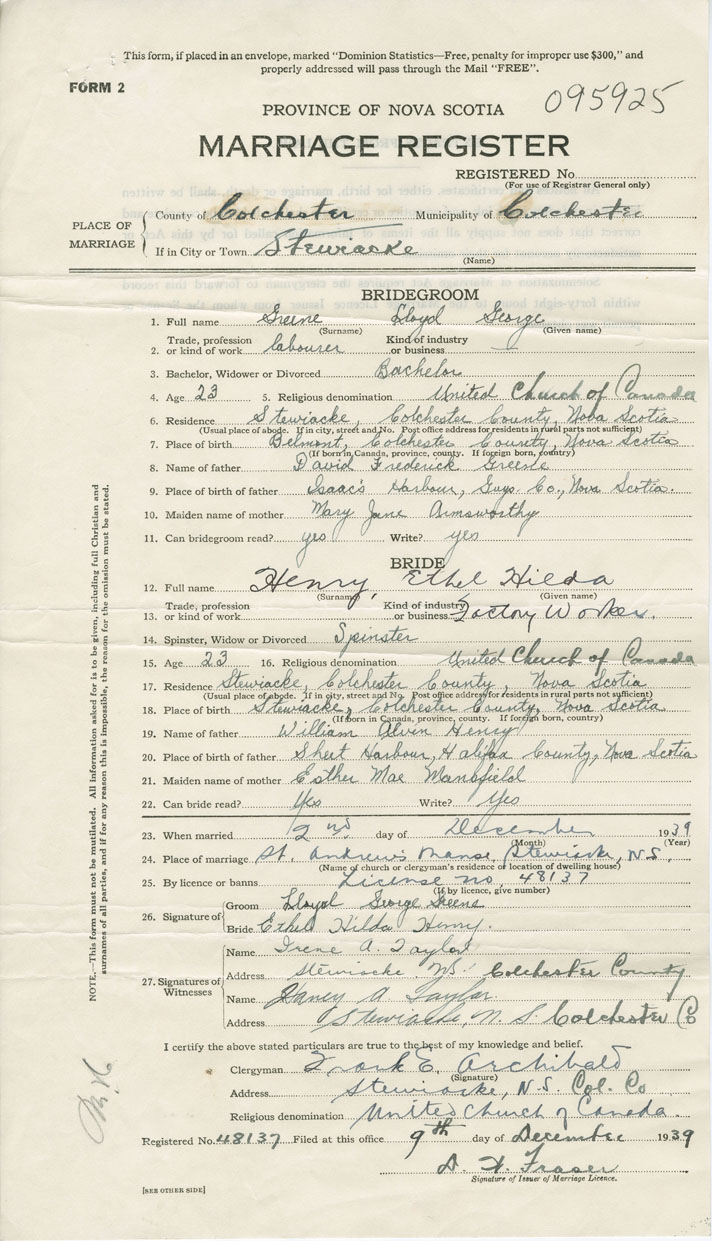 This form, if placed in an envelope, marked "Dominion Statistics—Free, penalty for improper use $300," and
properly addressed will pass through the Mail "FREE".
FORM 2
095925
PROVINCE OF NOVA SCOTIA
MARRIAGE REGISTER
REGISTERED No.
(For use of Registrar General only)
PLACE OF MARRIAGE
County of Colchester Municipality of Colchester
If in City or Town Stewiacke
(Name)
BRIDEGROOM
1. Full name Greene Lloyd George
(Surname) (Given name)
2. Trade, profession or kind of work labourer Kind of industry or business —
3. Bachelor, Widower or Divorced Bachelor
4. Age 23 5. Religious denomination United Church of Canada
6. Residence Stewiacke, Colchester County, Nova Scotia
(Usual place of abode. If in city, street and No. Post office address for residents in rural parts not sufficient)
7. Place of birth Belmont, Colchester County, Nova Scotia
(If born in Canada, province, county. If foreign born, country)
8. Name of father David Frederick Greene
9. Place of birth of father Isaac's Harbour, Guys. Co., Nova Scotia.
10. Maiden name of mother Mary Jane
11. Can bridegroom read? yes Write? yes
BRIDE
12. Full name Henry, Ethel Hilda
(Surname) (Given name)
13. Trade, profession or kind of work Kind of industry or business Factory Worker.
14. Spinster, Widow or Divorced Spinster
15. Age 23 16. Religious denomination United Church of Canada
17. Residence Stewiacke, Colchester County, Nova Scotia
(Usual place of abode. If in city, street and No. Post office address for residents in rural parts not sufficient)
18. Place of birth Stewiacke, Colchester County, Nova Scotia
(If born in Canada, province, county. If foreign born, country)
19. Name of father William Alvin Henry
20. Place of birth of father Sheet Harbour, Halifax County, Nova Scotia
21. Maiden name of mother Esther Mae Mansfield
22. Can bride read? Yes Write? Yes
23. When married 2nd day of December 1939
(Month) (Year)
24. Place of marriage St. Andrew's Manse, Stewiacke, N.S.
(Name of church or clergyman's residence or location of dwelling house)
25. By licence or banns License no. 48137
(If by licence, give number)
26. Signature of
Groom Lloyd George Greene
Bride Ethel Hilda Henry.
27. Signatures of Witnesses
Name Irene A. Taylor
Address Stewiacke N.S. Colchester County
Name A Taylor
Address Stewiacke, N. S. Colchester Co
I certify the above stated particulars are true to the best of my knowledge and belief.
Clergyman Frank E. Archibald
(Signature)
Address Stewiacke, N.S. Col. Co
Religious denomination United Church of Canada.
Registered No. 48137 Filed at this office 9th day of December 1939
Fraser
Signature of Issuer of Marriage Licence.
[SEE OTHER SIDE]
NOTE.—This form must not be mutilated. All information asked for is to be given, including full Christian and
surnames of all parties, and if for any reason this is impossible, the reason for the omission must be stated.